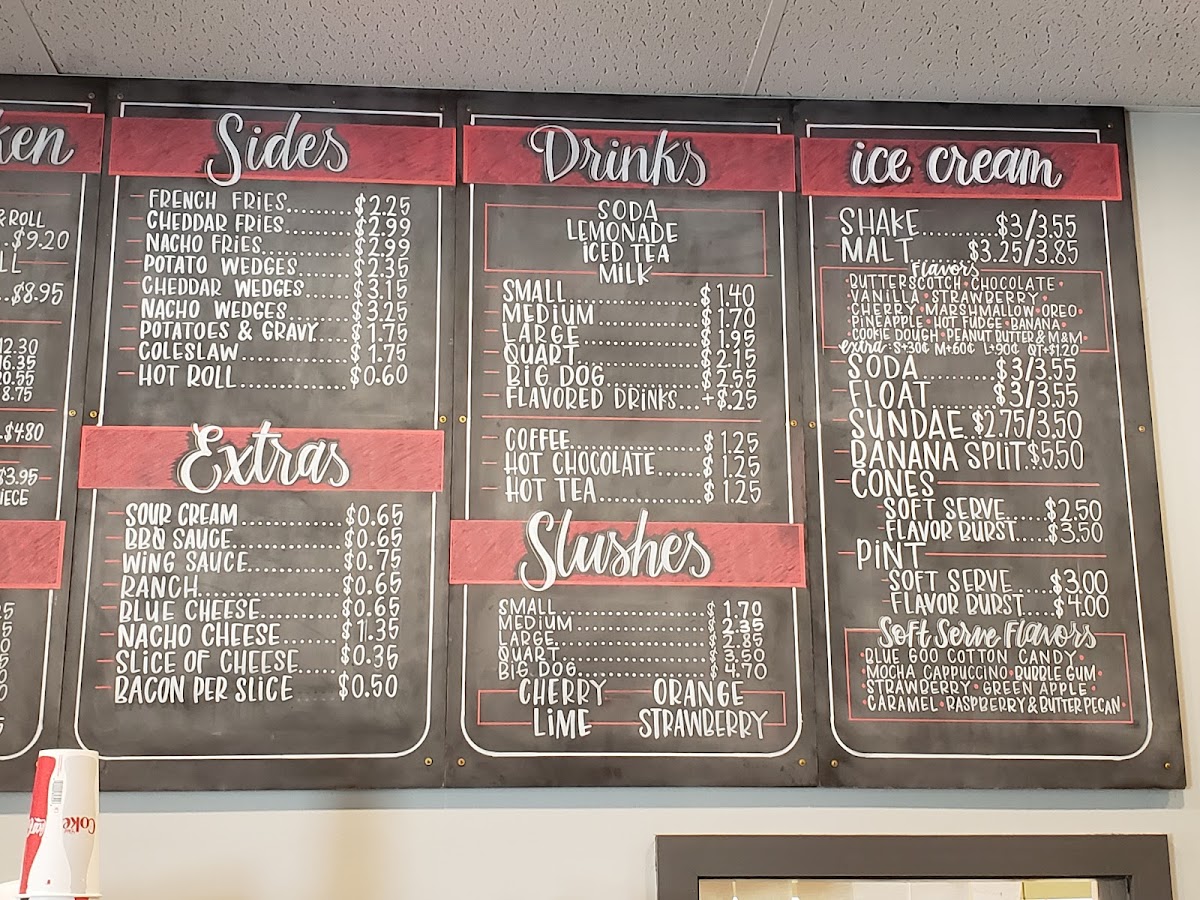 ken
& ROLL
..$9.20
LL
..$8.95
12.30
16.35
20.55
8.75
.$4.80
$3.95
IECE
Sides
FRENCH FRIES........$2.25
CHEDDAR FRIES.......$2.99
NACHO FRIES.........$2.99
POTATO WEDGES.......$2.35
CHEDDAR WEDGES......$3.15
NACHO WEDGES........$3.25
POTATOES & GRAVY....$1.75
COLESLAW............$1.75
HOT ROLL............$0.60
Extras
SOUR CREAM..........$0.65
BBQ SAUCE...........$0.65
WING SAUCE..........$0.75
RANCH...............$0.65
BLUE CHEESE.........$0.65
NACHO CHEESE........$1.35
SLICE OF CHEESE.....$0.35
BACON PER SLICE.....$0.50
Drinks
SODA
LEMONADE
ICED TEA
MILK
SMALL...............$1.40
MEDIUM..............$1.70
LARGE...............$1.95
QUART...............$2.15
BIG DOG.............$2.55
FLAVORED DRINKS...+$.25
COFFEE..............$1.25
HOT CHOCOLATE.......$1.25
HOT TEA.............$1.25
Slushes
SMALL...............$1.70
MEDIUM..............$2.35
LARGE
QUART
BIG DOG.............$4.70
CHERRY ORANGE
LIME STRAWBERRY
ice cream
SHAKE..........$3/3.55
MALT......$3.25/3.85
Flavors
•BUTTERSCOTCH•CHOCOLATE•
VANILLA•STRAWBERRY•
•CHERRY•MARSHMALLOW•OREO•
•PINEAPPLE•HOT FUDGE•BANANA•
COOKIE DOUGH•PEANUT BUTTER & M&M•
extra: S+30¢ M+60¢ L+90¢ QT+$1.20
SODA..........$3/3.55
FLOAT.........$3/3.55
SUNDAE.$2.75/3.50
BANANA SPLIT.$5.50
CONES
SOFT SERVE.....$2.50
FLAVOR BURST.....$3.50
PINT
SOFT SERVE.....$3.00
FLAVOR BURST....$4.00
Soft Serve Flavors
•BLUE GOO COTTON CANDY•
•MOCHA CAPPUCCINO•BUBBLE GUM•
•STRAWBERRY•GREEN APPLE•
•CARAMEL•RASPBERRY & BUTTER PECAN•
Coke